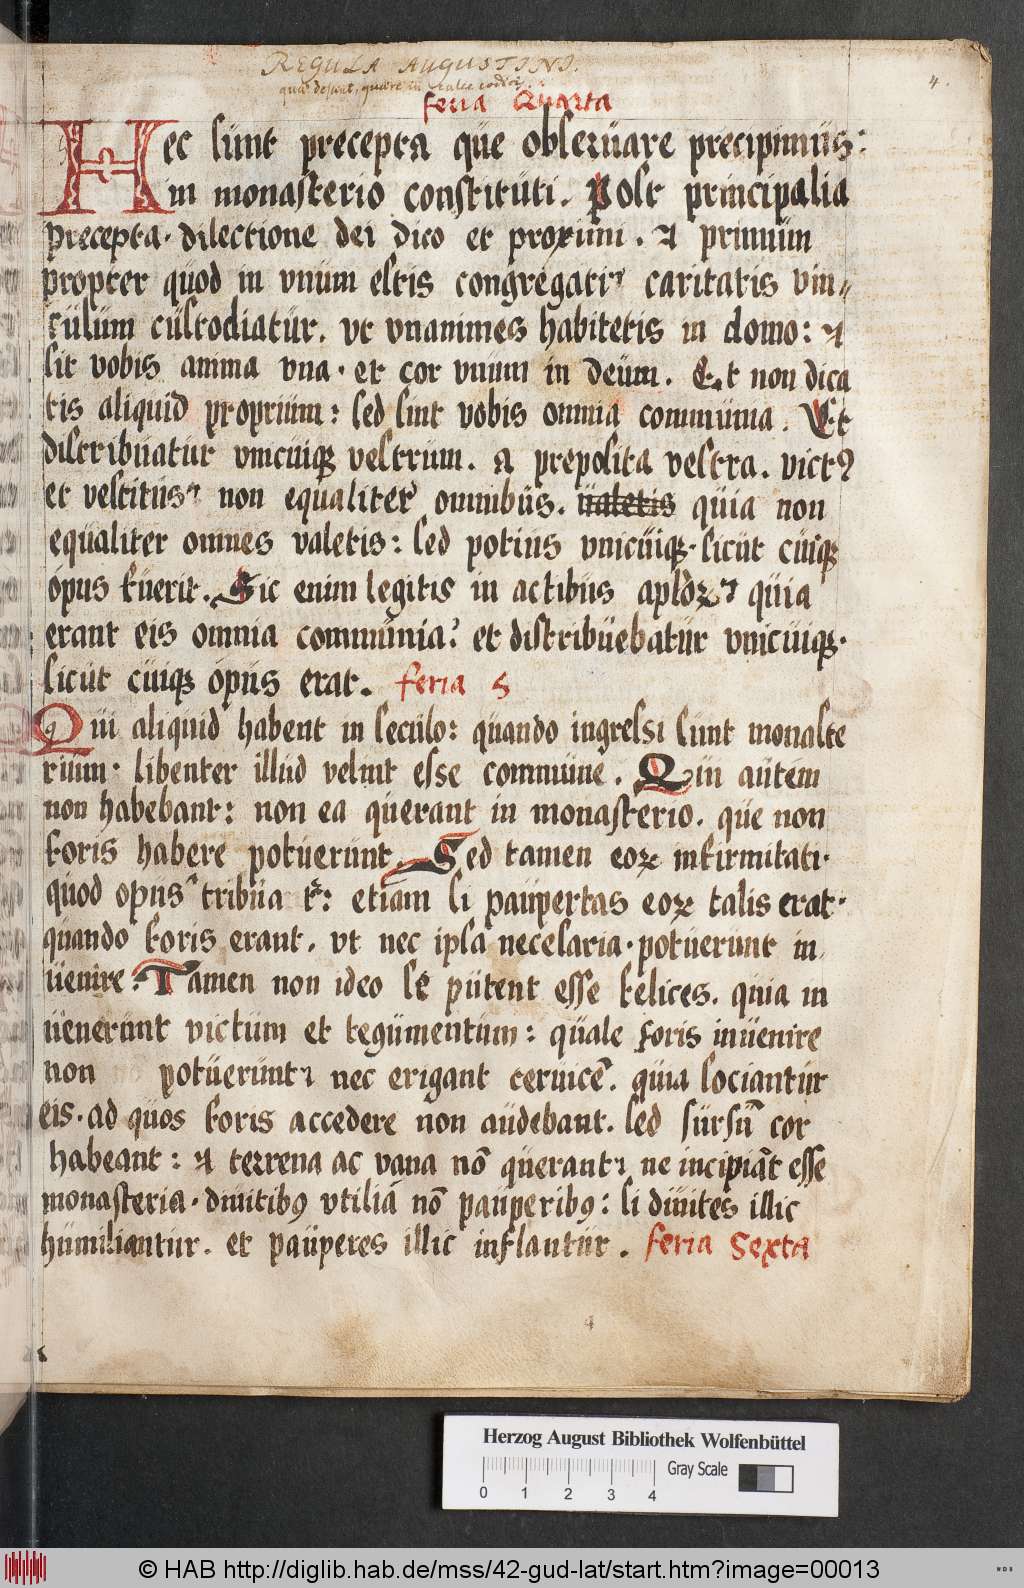 REGULA AUGUSTINI.
quae desunt, quaere in calce codicis
4.
feria Quarta
Hec sunt precepta que obseruare precipimus:
in monasterio constituti. Post principalia
precepta. dilectione dei dico et proximi. ⁊ primum
propter quod in vnum estis congregati caritatis vin
culum custodiatur. vt vnanimes habitetis in domo: ⁊
sit vobis anima vna. et cor vnum in deum. Et non dica
tis aliquid proprium: sed sint vobis omnia communia. Et
distribuatur vnicuiqꝫ vestrum. a preposita vestra. victꝰ
et vestitus non equaliter omnibus. ualetis quia non
equaliter omnes valetis: sed potius vnicuiqꝫ. sicut cuiqꝫ
opus fuerit. Sic enim legitis in actibus aplorꝫ quia
erant eis omnia communia? et distribuebatur vnicuiqꝫ.
sicut cuiqꝫ opus erat. feria 5
Qui aliquid habent in seculo: quando ingressi sunt monaste
rium. libenter illud velint esse commune. Qui autem
non habebant: non ea querant in monasterio. que non
foris habere potuerunt. Sed tamen eorꝫ infirmitati.
quod opus tribua tr: etiam si paupertas eorꝫ talis erat.
quando foris erant. vt nec ipsa necesaria. potuerunt in
uenire. Tamen non ideo se putent esse felices. quia in
uenerunt victum et tegumentum: quale foris inuenire
non potuerunt nec erigant ceruicē. quia sociantur
eis. ad quos foris accedere non audebant. sed sursū cor
habeant: ⁊ terrena ac vana nō querant ne incipiāt esse
monasteria. diuitibꝰ vtiliā nō pauperibꝰ: si diuites illic
humiliantur. et pauperes illic inflantur. feria Sexta
4
Herzog August Bibliothek Wolfenbüttel
0 1 2 3 4
Gray Scale
© HAB http://diglib.hab.de/mss/42-gud-lat/start.htm?image=00013